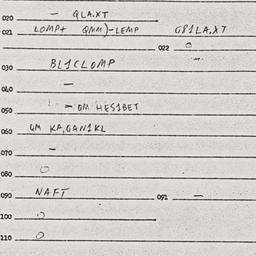 020 — QLA.XT
021 LOMP+ QMM)-LEMP G81LA,XT
022 O
030 BL1CLOMP —
040 —
050 — QM HES1BET
060 QM KA,GAN1KL
070 —
080 O
090 NAFT 091 —
100 O
110 O